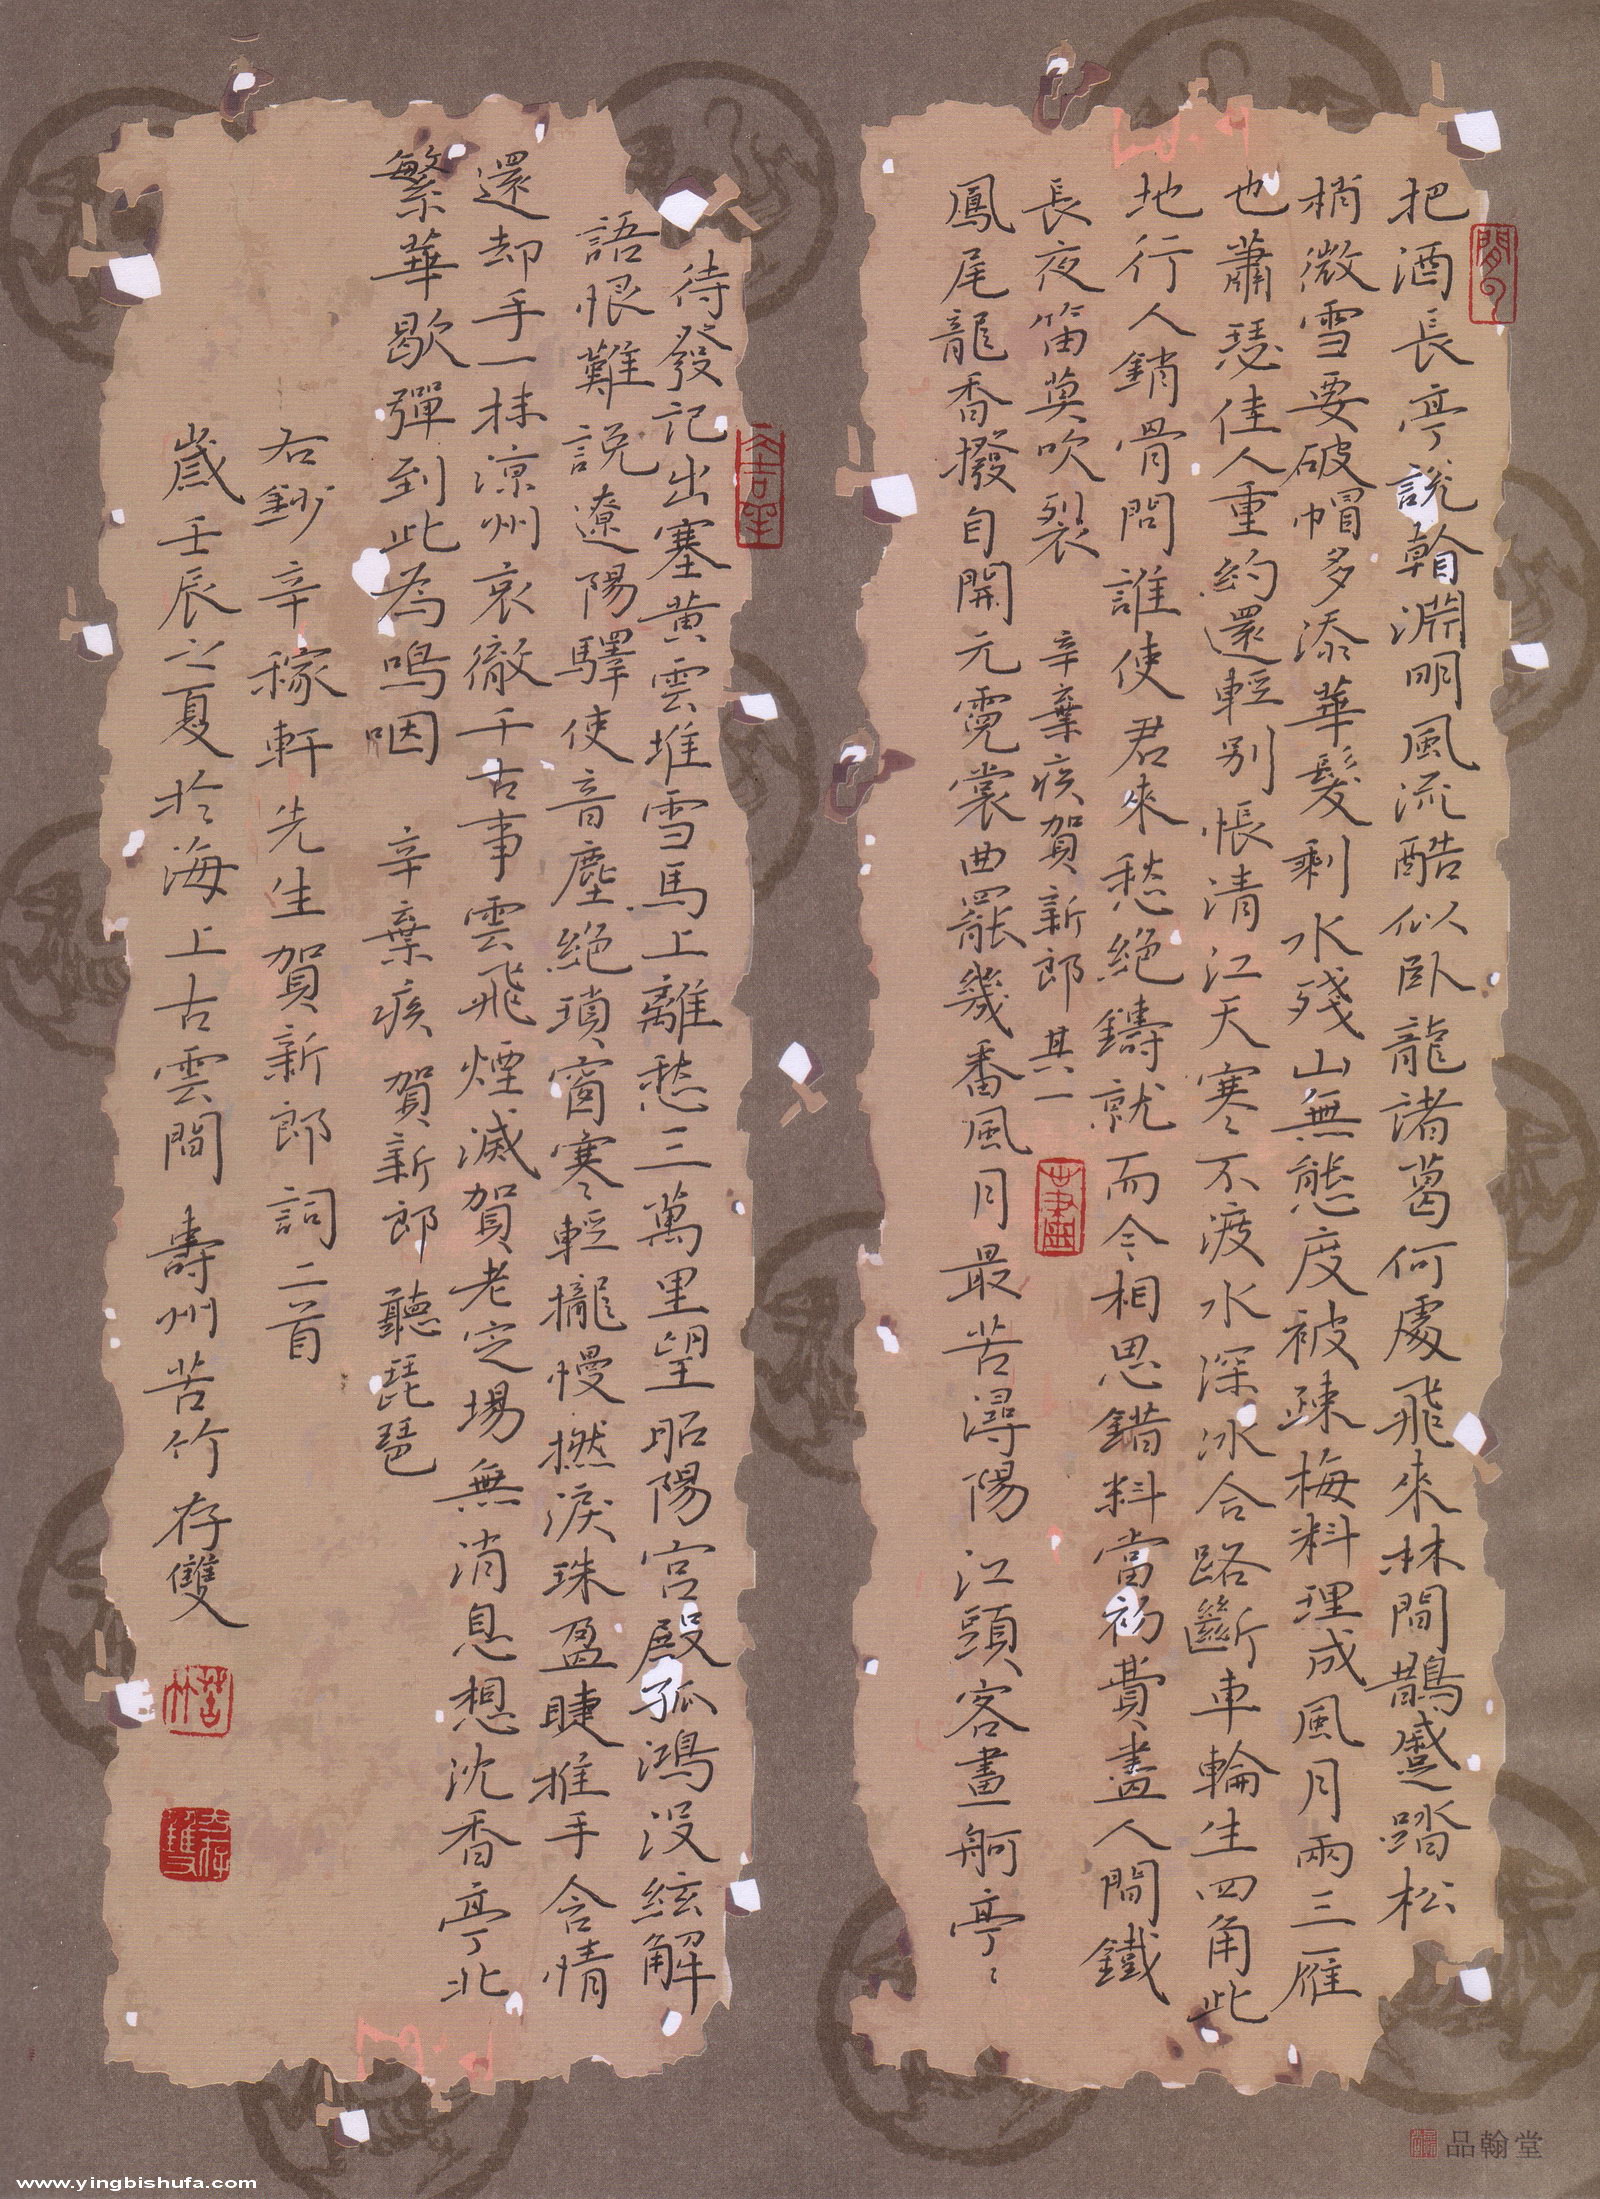 把酒長亭說看淵明風流酷似臥龍諸葛何處飛來林間鵲蹙踏松
梢微雪要破帽多添華髮剩水殘山無態度被疎梅料理成風月兩三雁
也蕭瑟佳人重約還輕別悵清江天寒不渡水深冰合路斷車輪生四角此
地行人銷骨問誰使君來愁絕鑄就而今相思錯料當初費盡人間鐵
長夜笛莫吹裂 辛棄疾賀新郎其一
鳳尾龍香撥自開元霓裳曲罷幾番風月最苦潯陽江頭客畫舸亭〻
待發記出塞黃雲堆雪馬上離愁三萬里望昭陽宮殿孤鴻沒絃解
語恨難說遼陽驛使音塵絕瑣窗寒輕攏慢撚淚珠盈睫推手含情
還却手一抹涼州哀徹千古事雲飛煙滅賀老定場無消息想沈香亭北
繁華歇彈到此為嗚咽 辛棄疾賀新郎聽琵琶
右鈔辛稼軒先生賀新郎詞二首
歲壬辰之夏於海上古雲間 壽州苦竹存雙
苦竹
品翰堂
www.yingbishufa.com